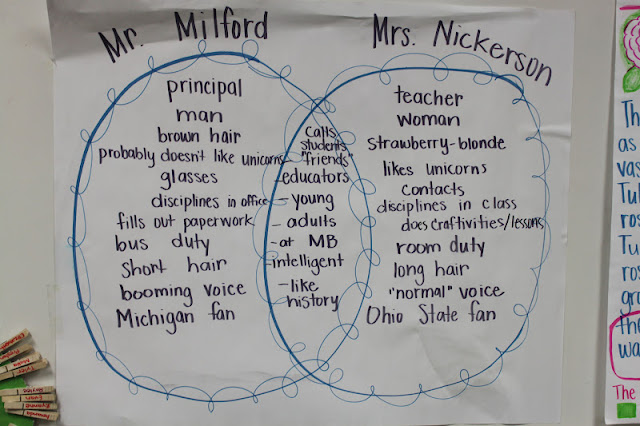 Mr. Milford
Mrs. Nickerson
principal
man
brown hair
probably doesn't like unicorns
glasses
disciplines in office
fills out paperwork
bus duty
short hair
booming voice
Michigan fan
calls
students
"friends"
-educators
-young
-adults
-at MB
-intelligent
-like
history
teacher
woman
strawberry-blonde
likes unicorns
contacts
disciplines in class
does craftivities/lessons
room duty
long hair
"normal" voice
Ohio State fan
as
ros
ros
the
wa
The